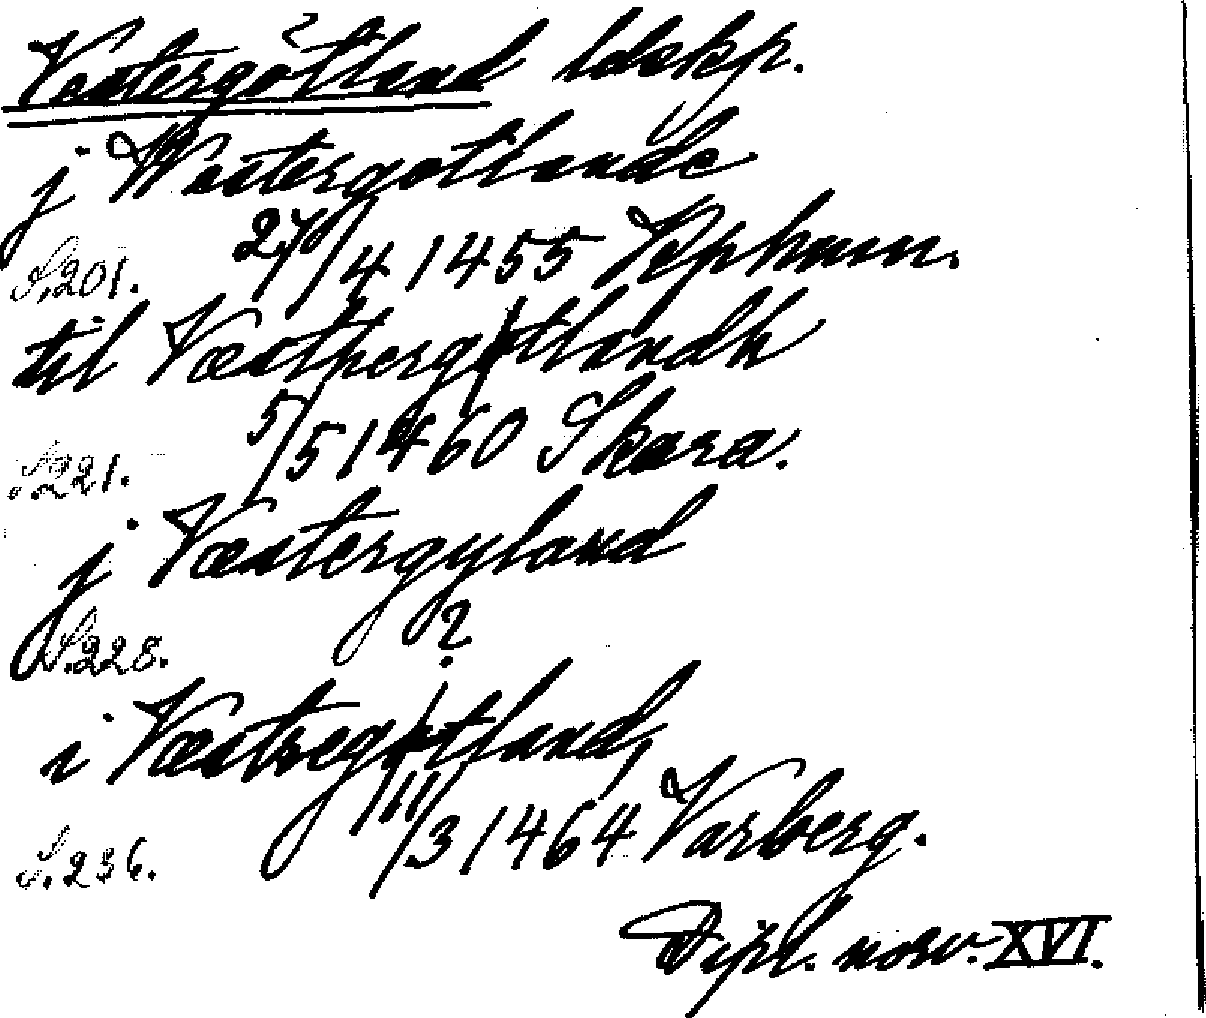 Västergötland ldskp.
j Westergotlande
S. 201. 27/4 1455 Köphamn.
til Væsthergøtlandh
S. 221. 5/5 1460 Skara.
j Væstergyland
S. 228. ?
i Væstregøtland,
S. 236. 11/3 1464 Varberg.
Dipl. norv. XVI.